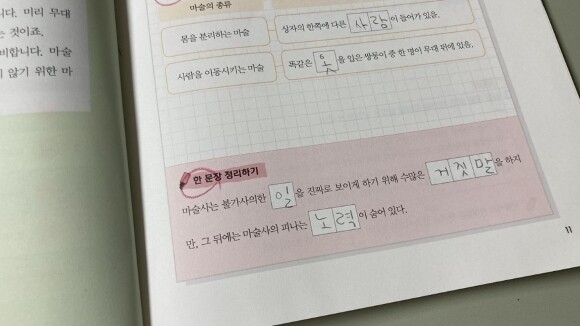 다. 미리 무대
는 것이죠.
비합니다. 마술
지 않기 위한 마
마술의 종류
몸을 분리하는 마술
상자의 한쪽에 다른 사람이 들어가 있음.
사람을 이동시키는 마술
똑같은 옷을 입은 쌍둥이 중 한 명이 무대 뒤에 있음.
한 문장 정리하기
마술사는 불가사의한 일을 진짜로 보이게 하기 위해 수많은 거짓말을 하지
만, 그 뒤에는 마술사의 피나는 노력이 숨어 있다.
11